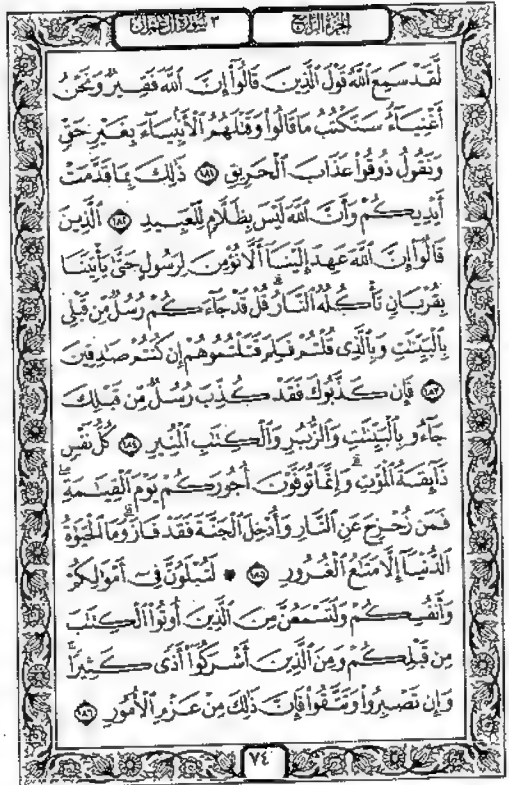 ٣ سُورَةُ آلِ عِمْرَانَ
الجُزْءُ الرَّابِعُ
لَّقَدْ سَمِعَ ٱللَّهُ قَوْلَ ٱلَّذِينَ قَالُوٓا۟ إِنَّ ٱللَّهَ فَقِيرٌ وَنَحْنُ
أَغْنِيَآءُ سَنَكْتُبُ مَا قَالُوا۟ وَقَتْلَهُمُ ٱلْأَنۢبِيَآءَ بِغَيْرِ حَقٍّ
وَنَقُولُ ذُوقُوا۟ عَذَابَ ٱلْحَرِيقِ ١٨١ ذَٰلِكَ بِمَا قَدَّمَتْ
أَيْدِيكُمْ وَأَنَّ ٱللَّهَ لَيْسَ بِظَلَّامٍ لِّلْعَبِيدِ ١٨٢ ٱلَّذِينَ
قَالُوٓا۟ إِنَّ ٱللَّهَ عَهِدَ إِلَيْنَآ أَلَّا نُؤْمِنَ لِرَسُولٍ حَتَّىٰ يَأْتِيَنَا
بِقُرْبَانٍ تَأْكُلُهُ ٱلنَّارُ ۗ قُلْ قَدْ جَآءَكُمْ رُسُلٌ مِّن قَبْلِى
بِٱلْبَيِّنَٰتِ وَبِٱلَّذِى قُلْتُمْ فَلِمَ قَتَلْتُمُوهُمْ إِن كُنتُمْ صَٰدِقِينَ
١٨٣ فَإِن كَذَّبُوكَ فَقَدْ كُذِّبَ رُسُلٌ مِّن قَبْلِكَ
جَآءُو بِٱلْبَيِّنَٰتِ وَٱلزُّبُرِ وَٱلْكِتَٰبِ ٱلْمُنِيرِ ١٨٤ كُلُّ نَفْسٍ
ذَآئِقَةُ ٱلْمَوْتِ ۗ وَإِنَّمَا تُوَفَّوْنَ أُجُورَكُمْ يَوْمَ ٱلْقِيَٰمَةِ ۖ
فَمَن زُحْزِحَ عَنِ ٱلنَّارِ وَأُدْخِلَ ٱلْجَنَّةَ فَقَدْ فَازَ ۗ وَمَا ٱلْحَيَوٰةُ
ٱلدُّنْيَآ إِلَّا مَتَٰعُ ٱلْغُرُورِ ١٨٥ ۞ لَتُبْلَوُنَّ فِىٓ أَمْوَٰلِكُمْ
وَأَنفُسِكُمْ وَلَتَسْمَعُنَّ مِنَ ٱلَّذِينَ أُوتُوا۟ ٱلْكِتَٰبَ
مِن قَبْلِكُمْ وَمِنَ ٱلَّذِينَ أَشْرَكُوٓا۟ أَذًى كَثِيرًا ۚ
وَإِن تَصْبِرُوا۟ وَتَتَّقُوا۟ فَإِنَّ ذَٰلِكَ مِنْ عَزْمِ ٱلْأُمُورِ ١٨٦
٧٤